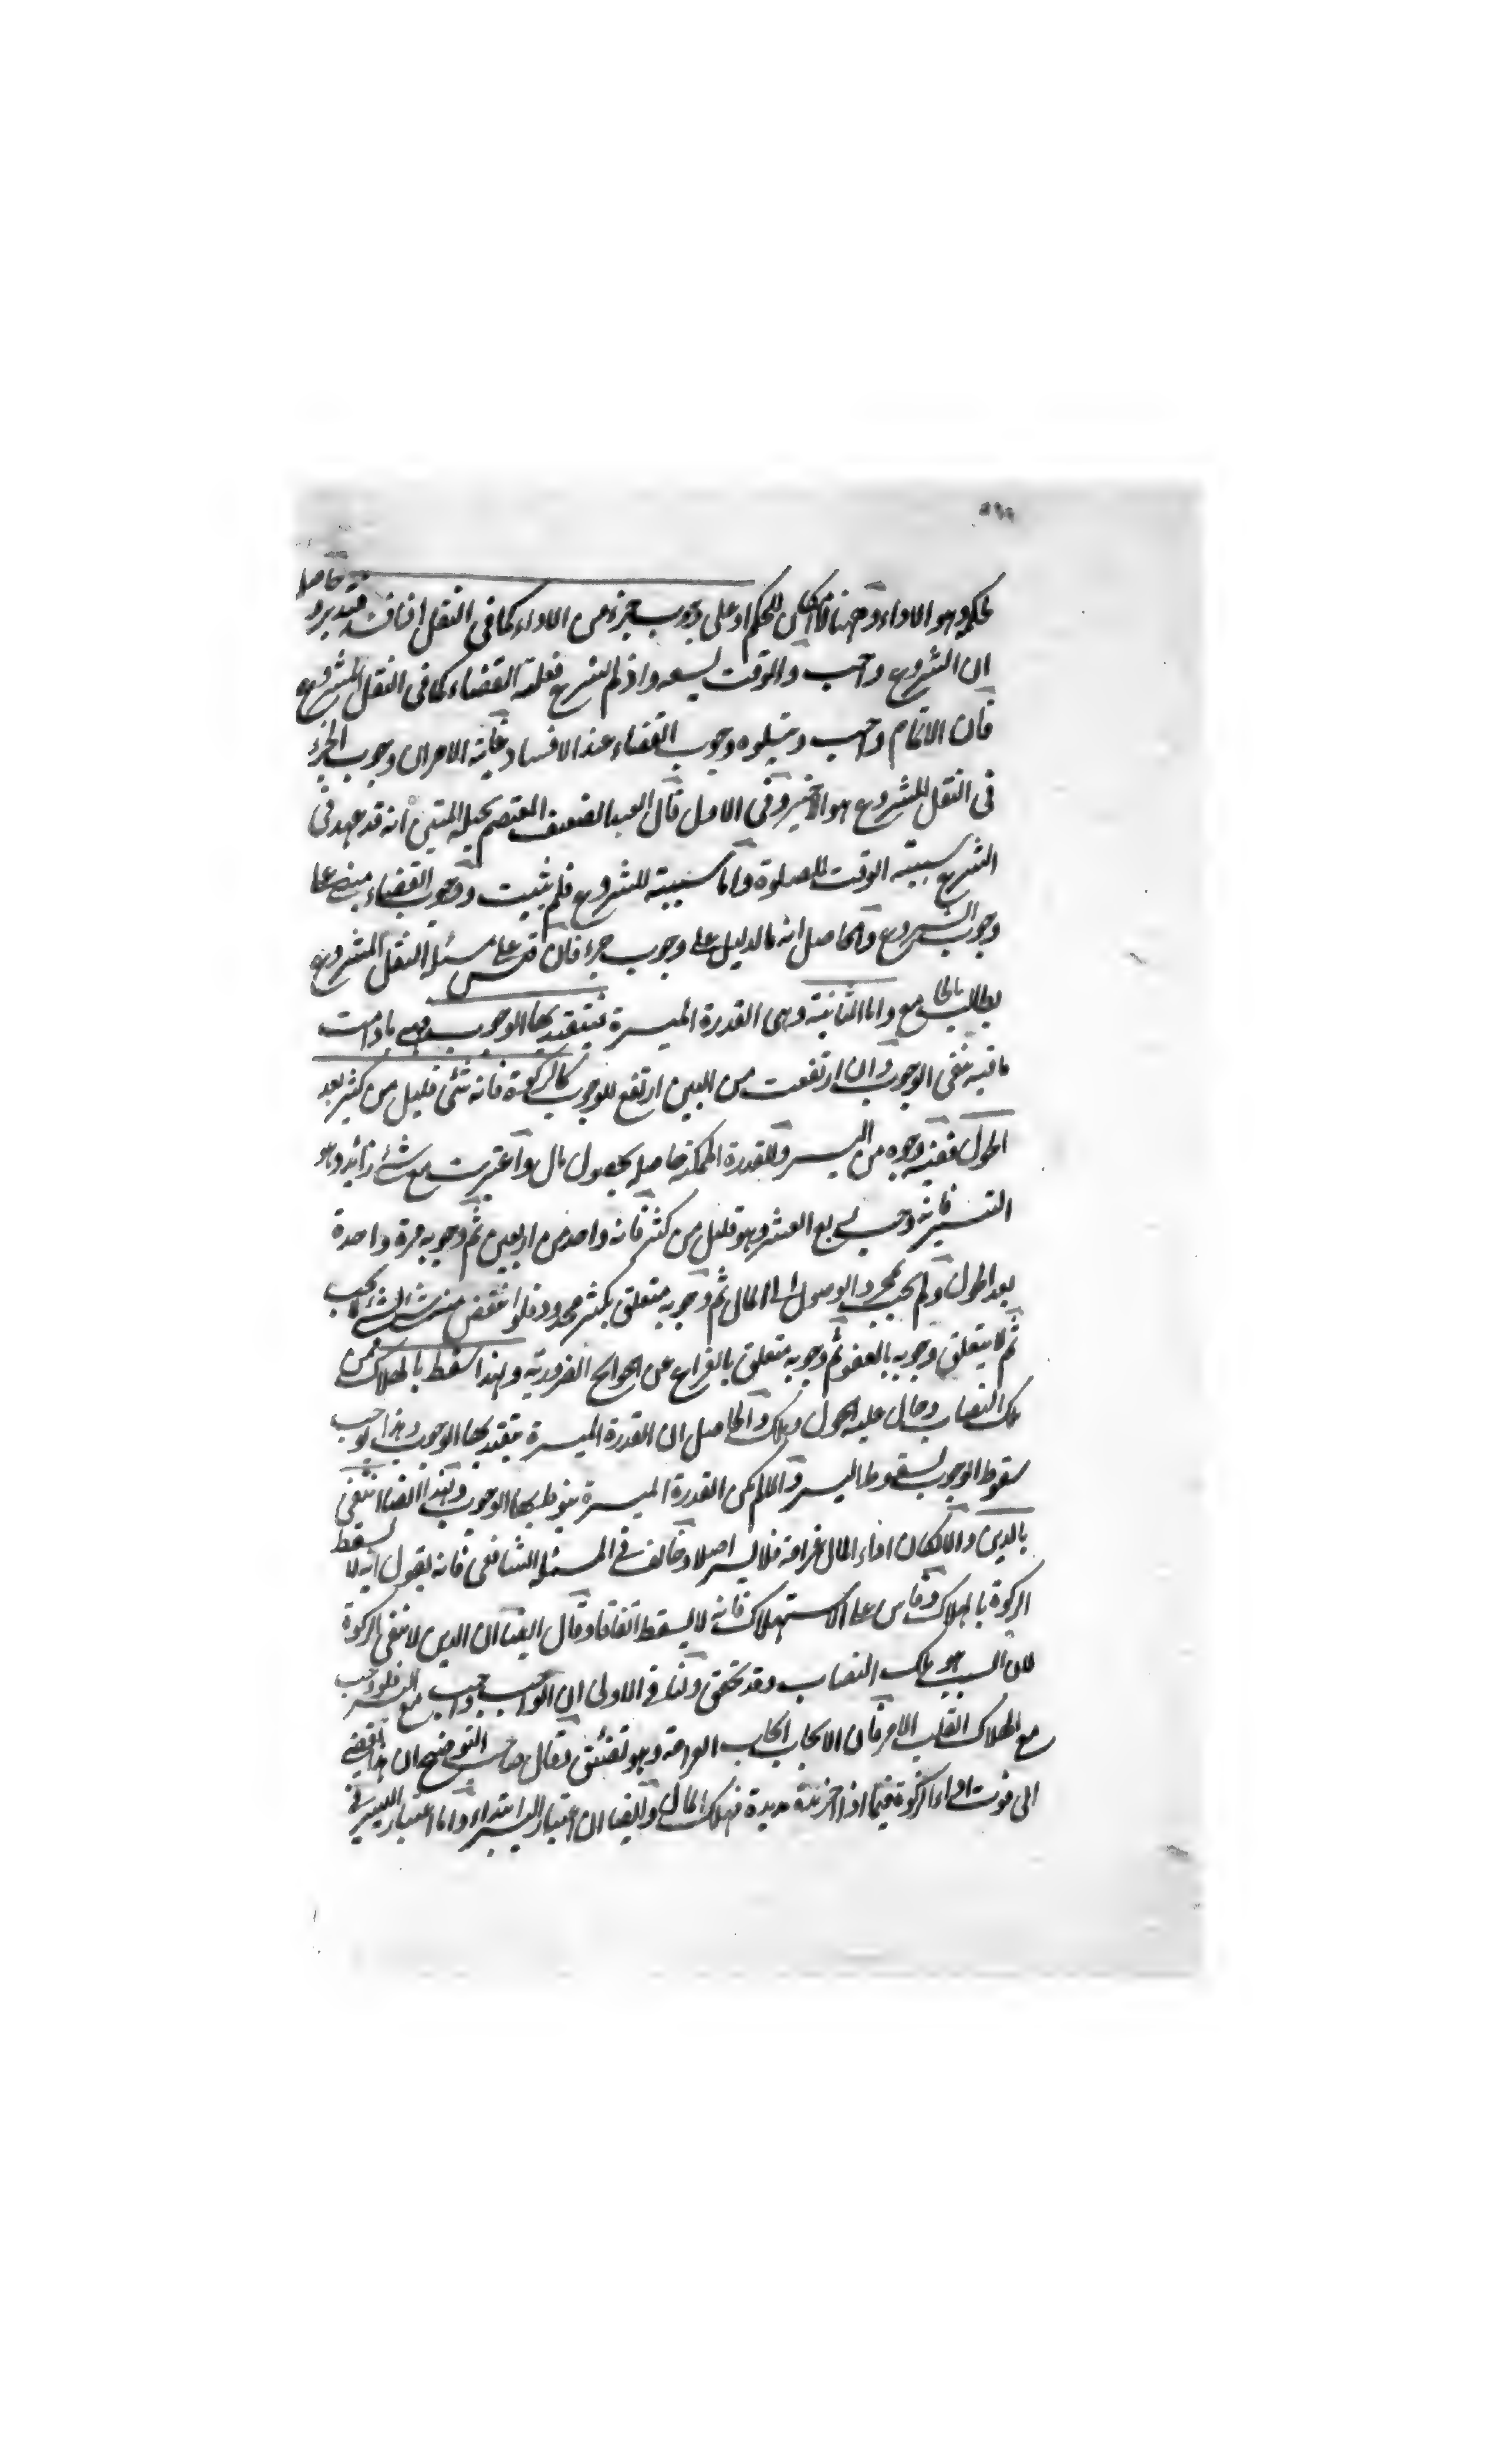 لحكم وهو الاداء وههنا لا امكان للحكم او على وجوب جزء من الاداء كما فى النفل اذا فسد فتدبر وحاصله
ان الشروع واجب والوقت يسعه واذ لم يشرع فعليه القضاء كما فى النفل المشروع
فان الاتمام واجب ويتلوه وجوب القضاء عند الافساد غاية الامر ان وجوب الجزء
فى النفل المشروع هو الاخير وفى الاول قال العبد الضعيف المعتصم بحبله المتين انه قد عهد فى
الشرع سببية الوقت للصلوة واما سببيته للشروع فلم يثبت ووجوب القضاء متفرع على
وجوب الشروع والحاصل انه ما الدليل على وجوب جزء فان قيس على مسئلة النفل المشروع
يطالب بالجامع واما الثانية وهى القدرة الميسرة فيتقيد بها الوجوب فهى ما دامت
باقية بقى الوجوب وان ارتفعت من البين ارتفع الوجوب كالزكوة فانه شئ قليل من كثير بعد
الحول ففيه وجوه من اليسر والقدرة الممكنة حاصلة بحصول مال واعتبرت مع شئ زائد وهو
التيسير فانه وجب ربع العشر وهو قليل من كثير فانه واحد من اربعين ثم وجوبه مرة واحدة
بعد الحول ولم يجب بمجرد الوصول الى المال ثم وجوبه متعلق بكثير محدود فلو انتقض منه شئ لا يجب
ثم لا يتعلق وجوبه بالعفو ثم وجوبه متعلق بالفراغ عن الحوائج الضرورية ولهذا سقط بالهلاك فمن
ملك النصاب وحال عليه الحول وهلك والحاصل ان القدرة الميسرة يتقيد بها الوجوب وهذا يوجب
سقوط الوجوب لسقوط اليسر والا لم يكن القدرة الميسرة ينوط بها الوجوب ولهذا ايضا انتفى
بالدين والا لكان اداء المال غرامة فلا يسر اصلا وخالف فى المسئلة الشافعى فانه يقول انه لا يسقط
الزكوة بالهلاك وقاس على الاستهلاك فانه لا يسقط اتفاقا وقال ايضا ان الدين لا ينفى الزكوة
لان السبب هو ملك النصاب وقد تحقق ولنا فى الاولى ان الواجب وجب مع اليسر فلو وجب
مع الهلاك انقلب الامر فان الايجاب ايجاب الغرامة وهو تضييق وقال صاحب التوضيح ان هذا يفضى
الى فوت اداء الزكوة فيما اذا اخر مدة مديدة فهلك المال وايضا ان اعتبار اليسر ابتداء واما اعتبار اليسير فى